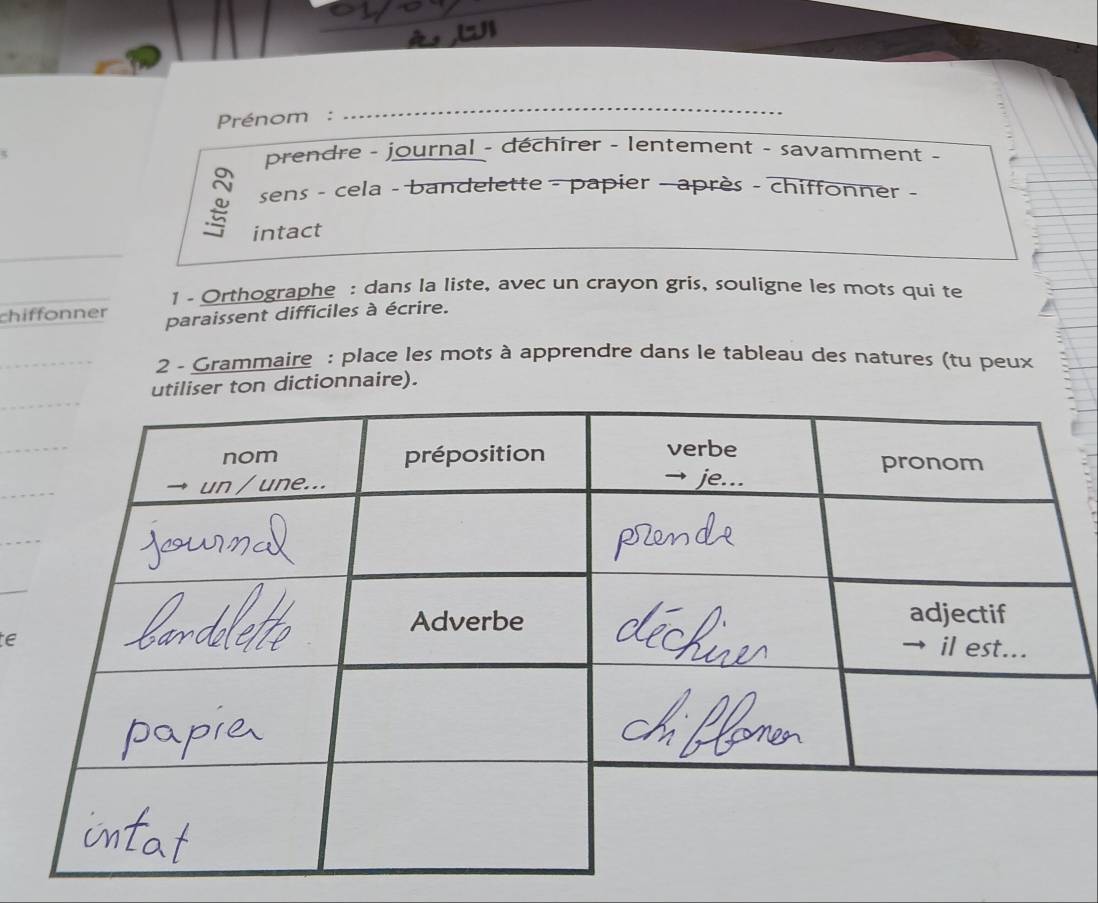 01/0
التاريخ
Prénom :
Liste 29
prendre - journal - déchirer - lentement - savamment -
sens - cela - bandelette - papier - après - chiffonner -
intact
1 - Orthographe : dans la liste, avec un crayon gris, souligne les mots qui te
paraissent difficiles à écrire.
chiffonner
2 - Grammaire : place les mots à apprendre dans le tableau des natures (tu peux
utiliser ton dictionnaire).
nom préposition verbe pronom
→ un / une... → je...
journal prende
Adverbe adjectif
bandelette déchirer → il est...
te
papier chiffoner
intat